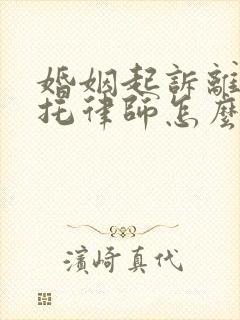 婚姻起訴離
托律師怎麼
濱崎真代